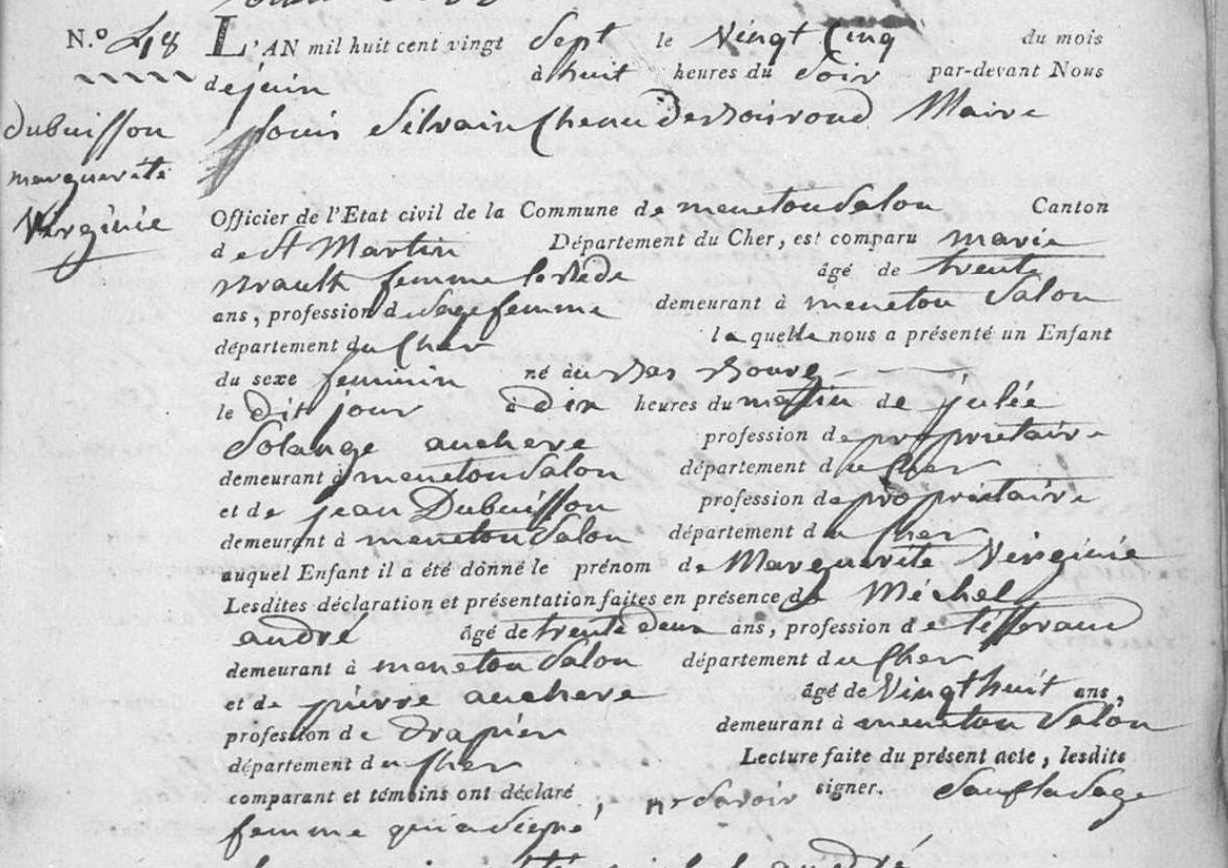 N.º 48 L'AN mil huit cent vingt Sept le Vingt Cinq du mois
de juin à huit heures du Soir par-devant Nous
dubuisson
Louis Silvain Maire
marguerite
Virginie
Officier de l'Etat civil de la Commune de menetou Salon Canton
de St Martin Département du Cher, est comparu marie
femme âgé de trente
ans, profession de sage femme demeurant à menetou Salon
département du Cher la quelle nous a présenté un Enfant
du sexe feminin né au Bas Bourg
le dit jour à dix heures du matin de julée
Solange auchere profession de propriétaire
demeurant à menetou Salon département du Cher
et de jean Dubuisson profession de propriétaire
demeurant à menetou Salon département du Cher
auquel Enfant il a été donné le prénom de Marguerite Virginie
Lesdites déclaration et présentation faites en présence de Méchel
andré âgé de trente deux ans, profession de tisserand
demeurant à menetou Salon département du Cher
et de pierre auchere âgé de Vingt huit ans,
profession de drapier demeurant à menetou Salon
département du Cher Lecture faite du présent acte, lesdits
comparant et témoins ont déclaré ne Savoir signer. Sauf la Sage
femme qui a Signé